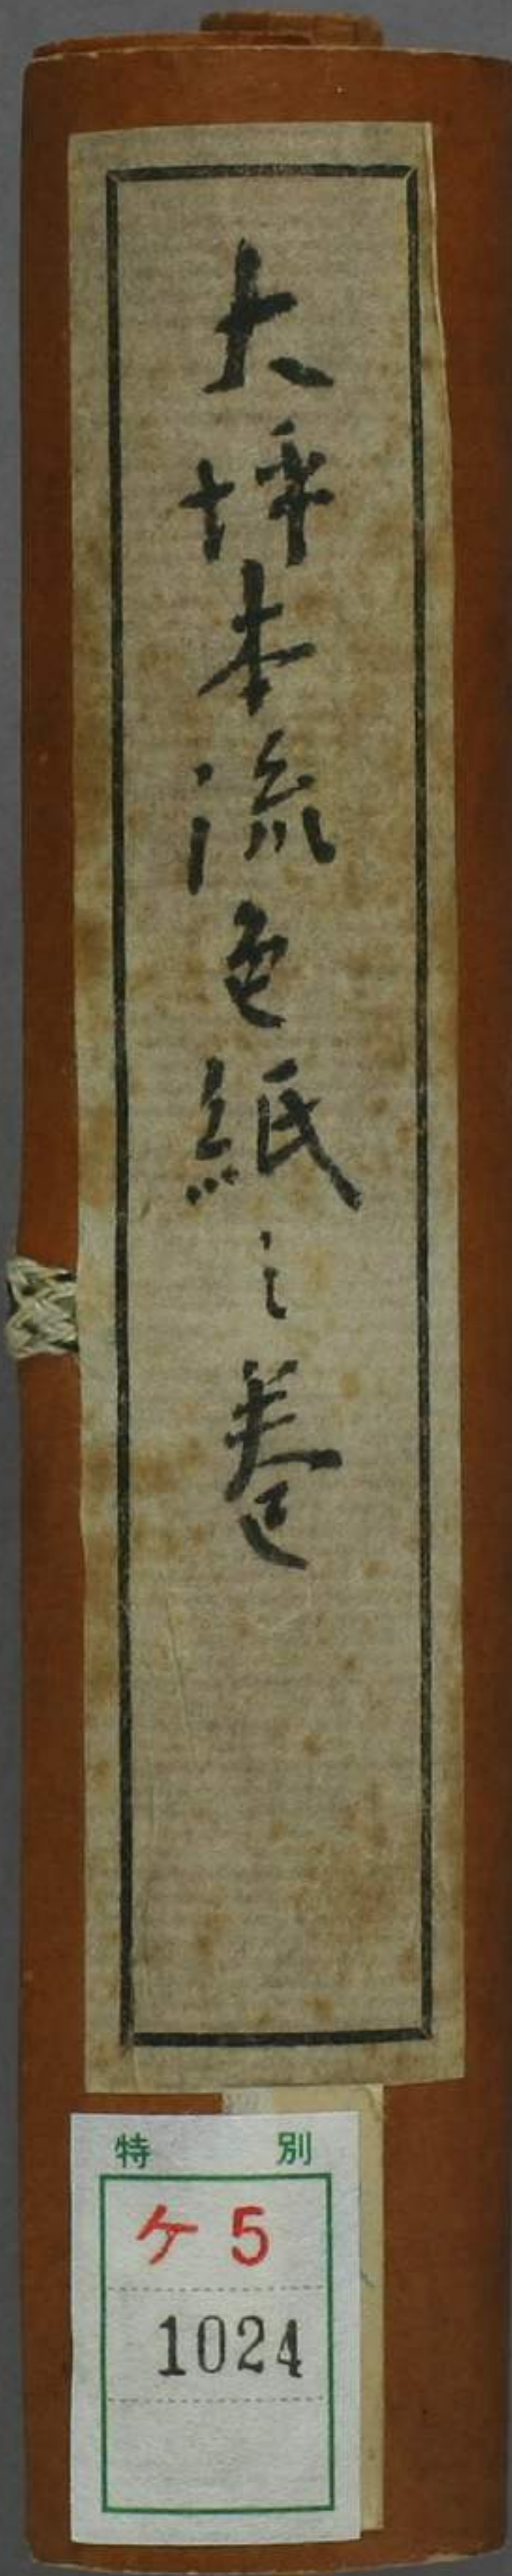 大坪本流色紙之巻
特別
ケ5
1024